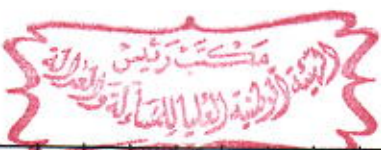 مكتب رئيس
الهيئة الوطنية العليا للمساءلة والعدالة